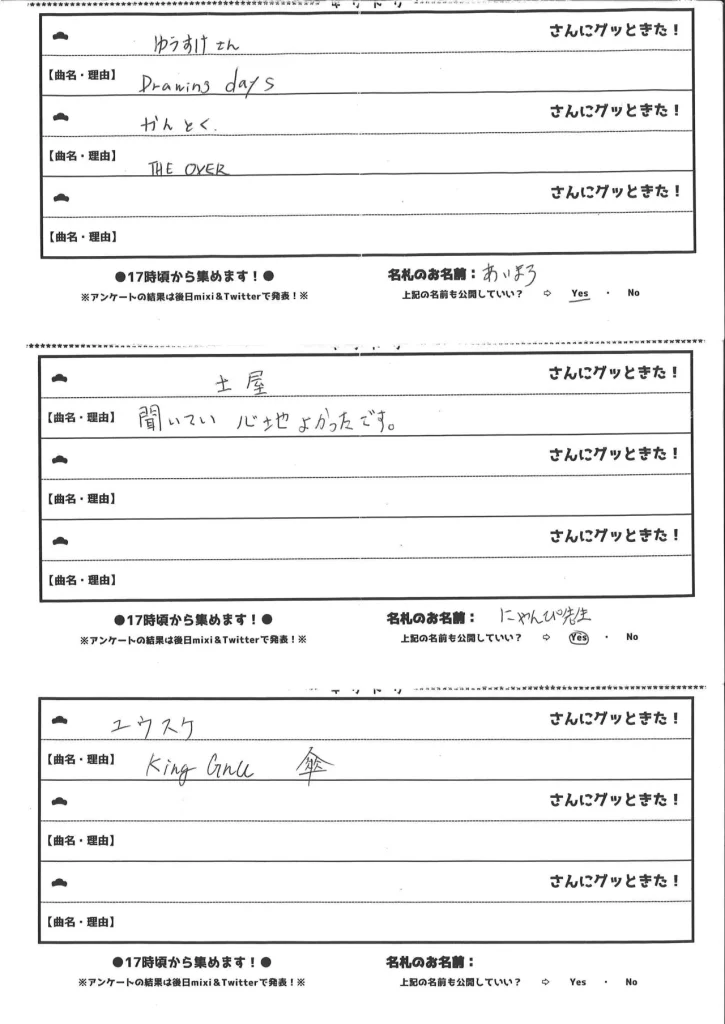 キリトリ
ゆうすけさん さんにグッときた！
【曲名・理由】 Drawing days
かんとく. さんにグッときた！
【曲名・理由】 THE OVER
さんにグッときた！
【曲名・理由】
●17時頃から集めます！● 名札のお名前： あいまろ
※アンケートの結果は後日mixi＆Twitterで発表！※ 上記の名前も公開していい？ ⇨ Yes ・ No
キリトリ
土屋 さんにグッときた！
【曲名・理由】 聞いてい 心地よかったです。
さんにグッときた！
【曲名・理由】
さんにグッときた！
【曲名・理由】
●17時頃から集めます！● 名札のお名前： にゃんぴ先生
※アンケートの結果は後日mixi＆Twitterで発表！※ 上記の名前も公開していい？ ⇨ Yes ・ No
キリトリ
ユウスケ さんにグッときた！
【曲名・理由】 King Gnu 傘
さんにグッときた！
【曲名・理由】
さんにグッときた！
【曲名・理由】
●17時頃から集めます！● 名札のお名前：
※アンケートの結果は後日mixi＆Twitterで発表！※ 上記の名前も公開していい？ ⇨ Yes ・ No